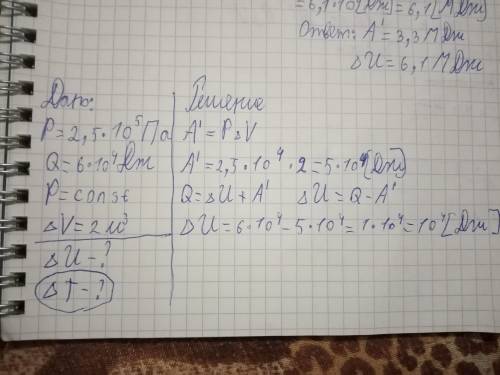 = 6,1·10⁶[Дж] = 6,1[МДж]
Ответ: A' = 3,3 МДж
ΔU = 6,1 МДж
Дано:
P = 2,5·10⁵ Па
Q = 6·10⁴ Дж
P = const
ΔV = 2 м³
ΔU - ?
ΔT - ?
Решение
A' = PΔV
A' = 2,5·10⁴·2 = 5·10⁴ [Дж]
Q = ΔU + A' ΔU = Q - A'
ΔU = 6·10⁴ - 5·10⁴ = 1·10⁴ = 10⁴ [Дж]